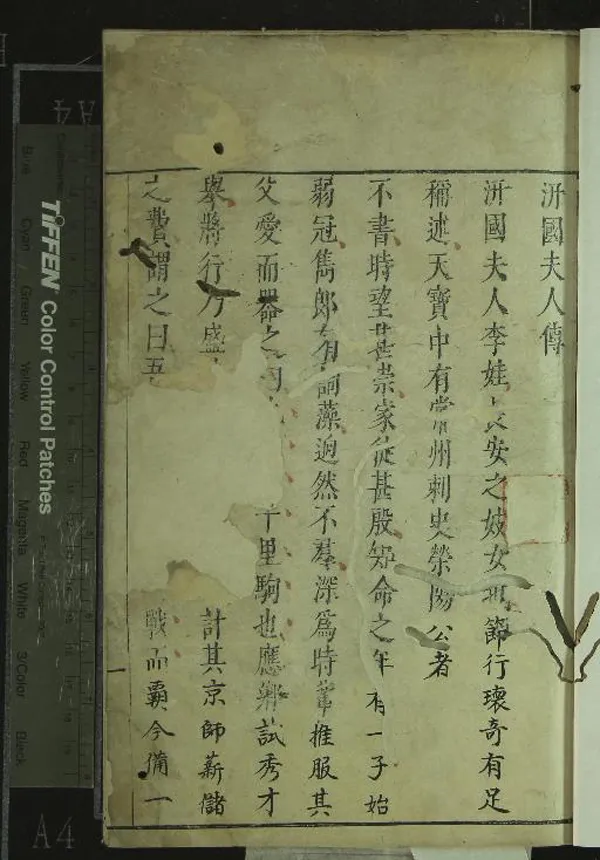 汧國夫人傳
汧國夫人李娃長安之妓女也節行瓌奇有足
稱述天寶中有常州刺史滎陽公者
不書時望甚崇家徒甚殷知命之年有一子始
弱冠雋郎有詞藻逈然不羣深為時輩推服其
父愛而器之曰 千里駒也應鄉試秀才
舉將行乃盛 計其京師薪儲
之費謂之曰五 戰而霸今備一
TIFFEN Color Control Patches
Blue
Cyan
Green
Yellow
Red
Magenta
White
3/Color
Black
A4
A4